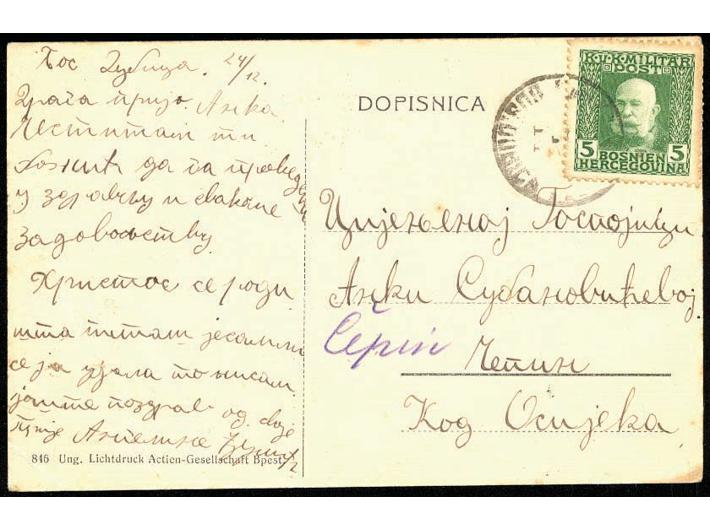 Бос Дубица. 24/12.
Драга пријо Анка
Честитам ти
Божић да га проведеш
у здрављу и свакоме
задовољству
Христос се роди
шта питаш јесам ли
се ја удала то нисам
јоште поздрав од твоје
прије
846 Ung. Lichtdruck Actien-Gesellschaft Bpest
DOPISNICA
K.U.K. MILITÄR
POST
5 5
BOSNIEN
HERCEGOVINA
Цијењеној Госпојици
Анки Субановићевој
Čepin
Чепин
Код Осијека